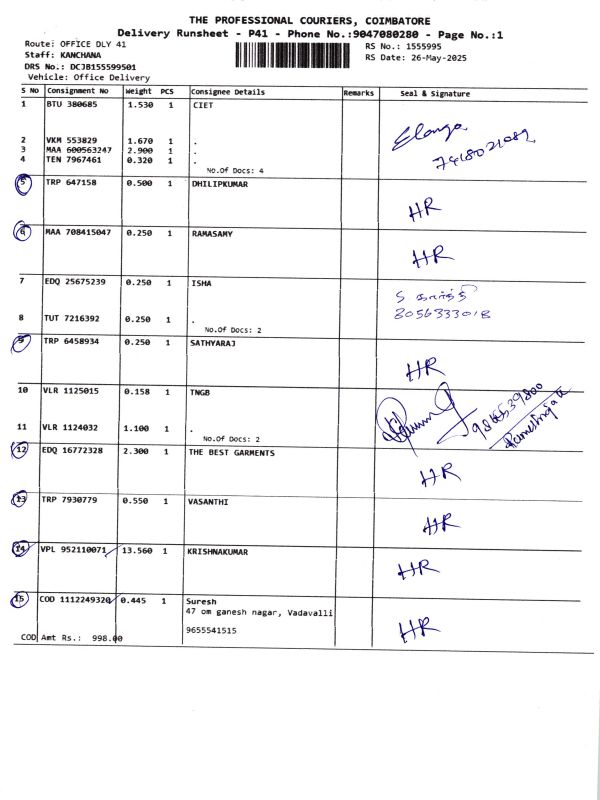 THE PROFESSIONAL COURIERS, COIMBATORE
Delivery Runsheet - P41 - Phone No.:9047080280 - Page No.:1
Route: OFFICE DLY 41 RS No.: 1555995
Staff: KANCHANA RS Date: 26-May-2025
DRS No.: DCJB155599501
Vehicle: Office Delivery
S No Consignment No Weight PCS Consignee Details Remarks Seal & Signature
1 BTU 380685 1.530 1 CIET
Elango
2 VKM 553829 1.670 1 . 7418021082
3 MAA 600563247 2.900 1 .
4 TEN 7967461 0.320 1 .
No.Of Docs: 4
5 TRP 647158 0.500 1 DHILIPKUMAR
HR
6 MAA 708415047 0.250 1 RAMASAMY
HR
7 EDQ 25675239 0.250 1 ISHA
S கார்த்தி
8056333018
8 TUT 7216392 0.250 1 .
No.Of Docs: 2
9 TRP 6458934 0.250 1 SATHYARAJ
HR
10 VLR 1125015 0.158 1 TNGB
11 VLR 1124032 1.100 1 .
No.Of Docs: 2
12 EDQ 16772328 2.300 1 THE BEST GARMENTS
HR
13 TRP 7930779 0.550 1 VASANTHI
HR
14 VPL 952110071 13.560 1 KRISHNAKUMAR
HR
15 COD 1112249320 0.445 1 Suresh
47 om ganesh nagar, Vadavalli
9655541515
HR
COD Amt Rs.: 998.00